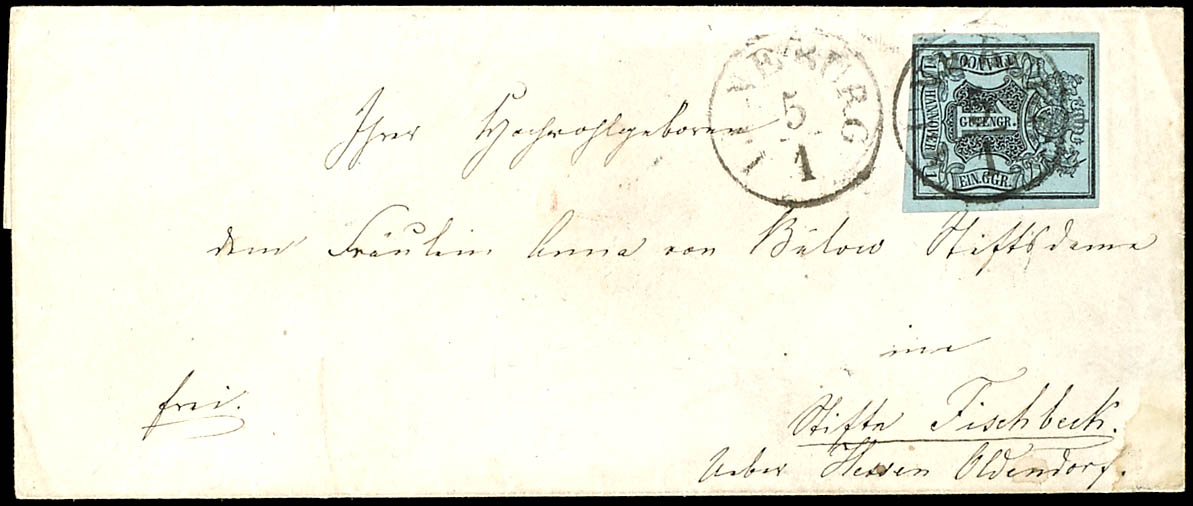 LÜNEBURG
5
1
FRANCO
HANNOVER
EIN GUTENGR.
EIN.GGR.
Ihrer Hochwohlgeboren
dem Fräulein Anna von Bülow Stiftsdame
im
frei.
Stifte Fischbeck.
Ueber Hessen Oldendorf.